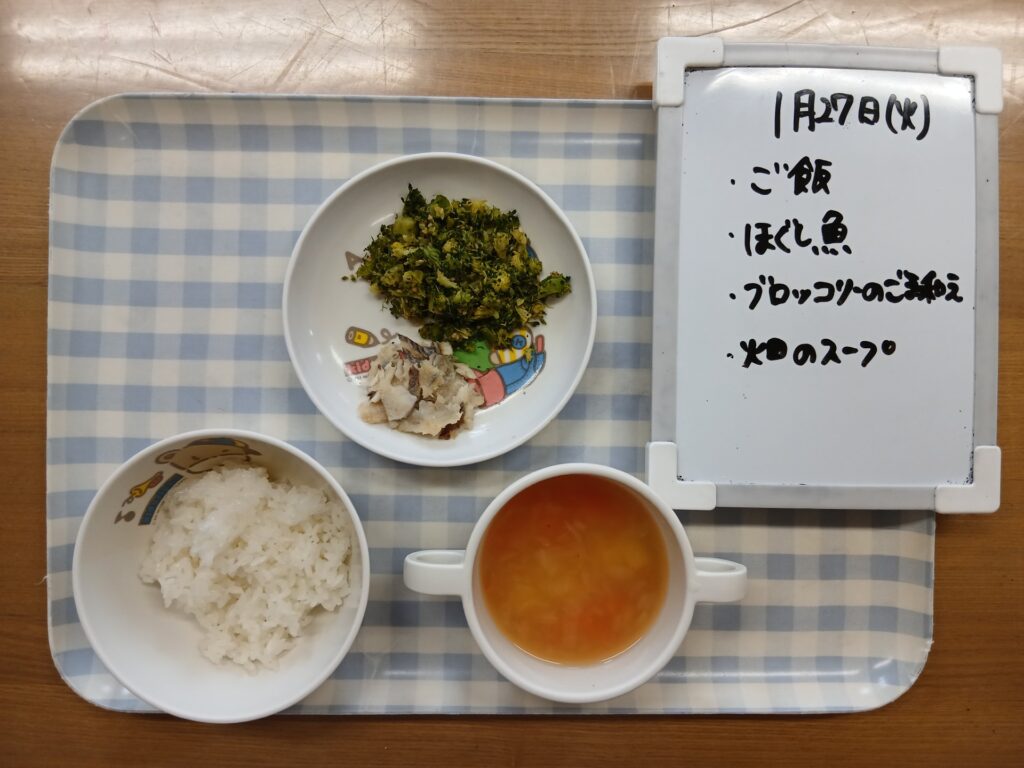 1月27日(火)
・ご飯
・ほぐし魚
・ブロッコリーのごま和え
・畑のスープ